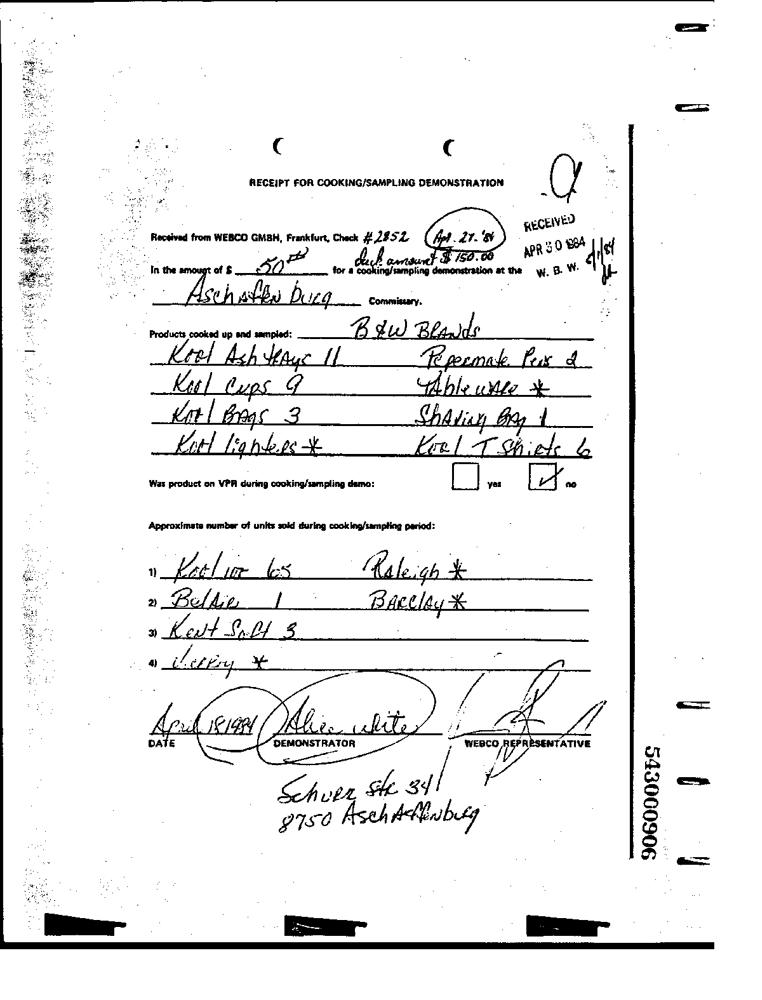 RECEIPT FOR COOKING/SAMPLING DEMONSTRATION
RECEIVED
APR 30 1984
W. B. W.
Received from WEBCO GMBH, Frankfurt, Check #2852 Apr. 27. '84
amount $ 150.00
In the amount of $ 50 for a cooking/sampling demonstration at the
Aschaffenburg Commissary.
Products cooked up and sampled: B&W Brands
Kool Ash trays 11 Pepermate Pens 2
Kool Cups 9 tableware *
Kool Bags 3 Shaving Bag 1
Kool lighters * Kool T Shirts 6
Was product on VPR during cooking/sampling demo: yes no
Approximate number of units sold during cooking/sampling period:
1) Kool 100 65 Raleigh *
2) BelAir 1 Barclay *
3) Kent Soft 3
4) *
April 18 1984 Alice White
DATE DEMONSTRATOR WEBCO REPRESENTATIVE
34
8750 Aschaffenburg
543000906